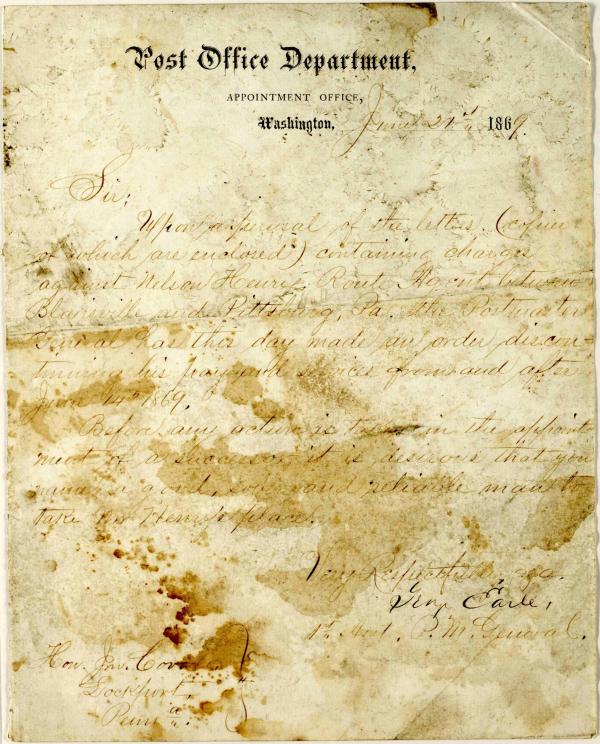 Post Office Department,
APPOINTMENT OFFICE,
Washington, June 21st 1869.
Sir;
Upon a perusal of the letters (copies
of which are enclosed) containing charges
against Nelson Henry, Route Agent between
Blairsville and Pittsburg, Pa. the Postmaster
General has this day made an order discon-
tinuing his pay and services from and after
June 1869.
Before any action is taken in the appoint
ment of a successor it is desirous that you
a good, and reliable man to
take Mr Henry's place.
Very Respectfully, &c.
Earle,
1st Asst. P. M. General.
Hon. Jno. Covode
Lockport,
Penna